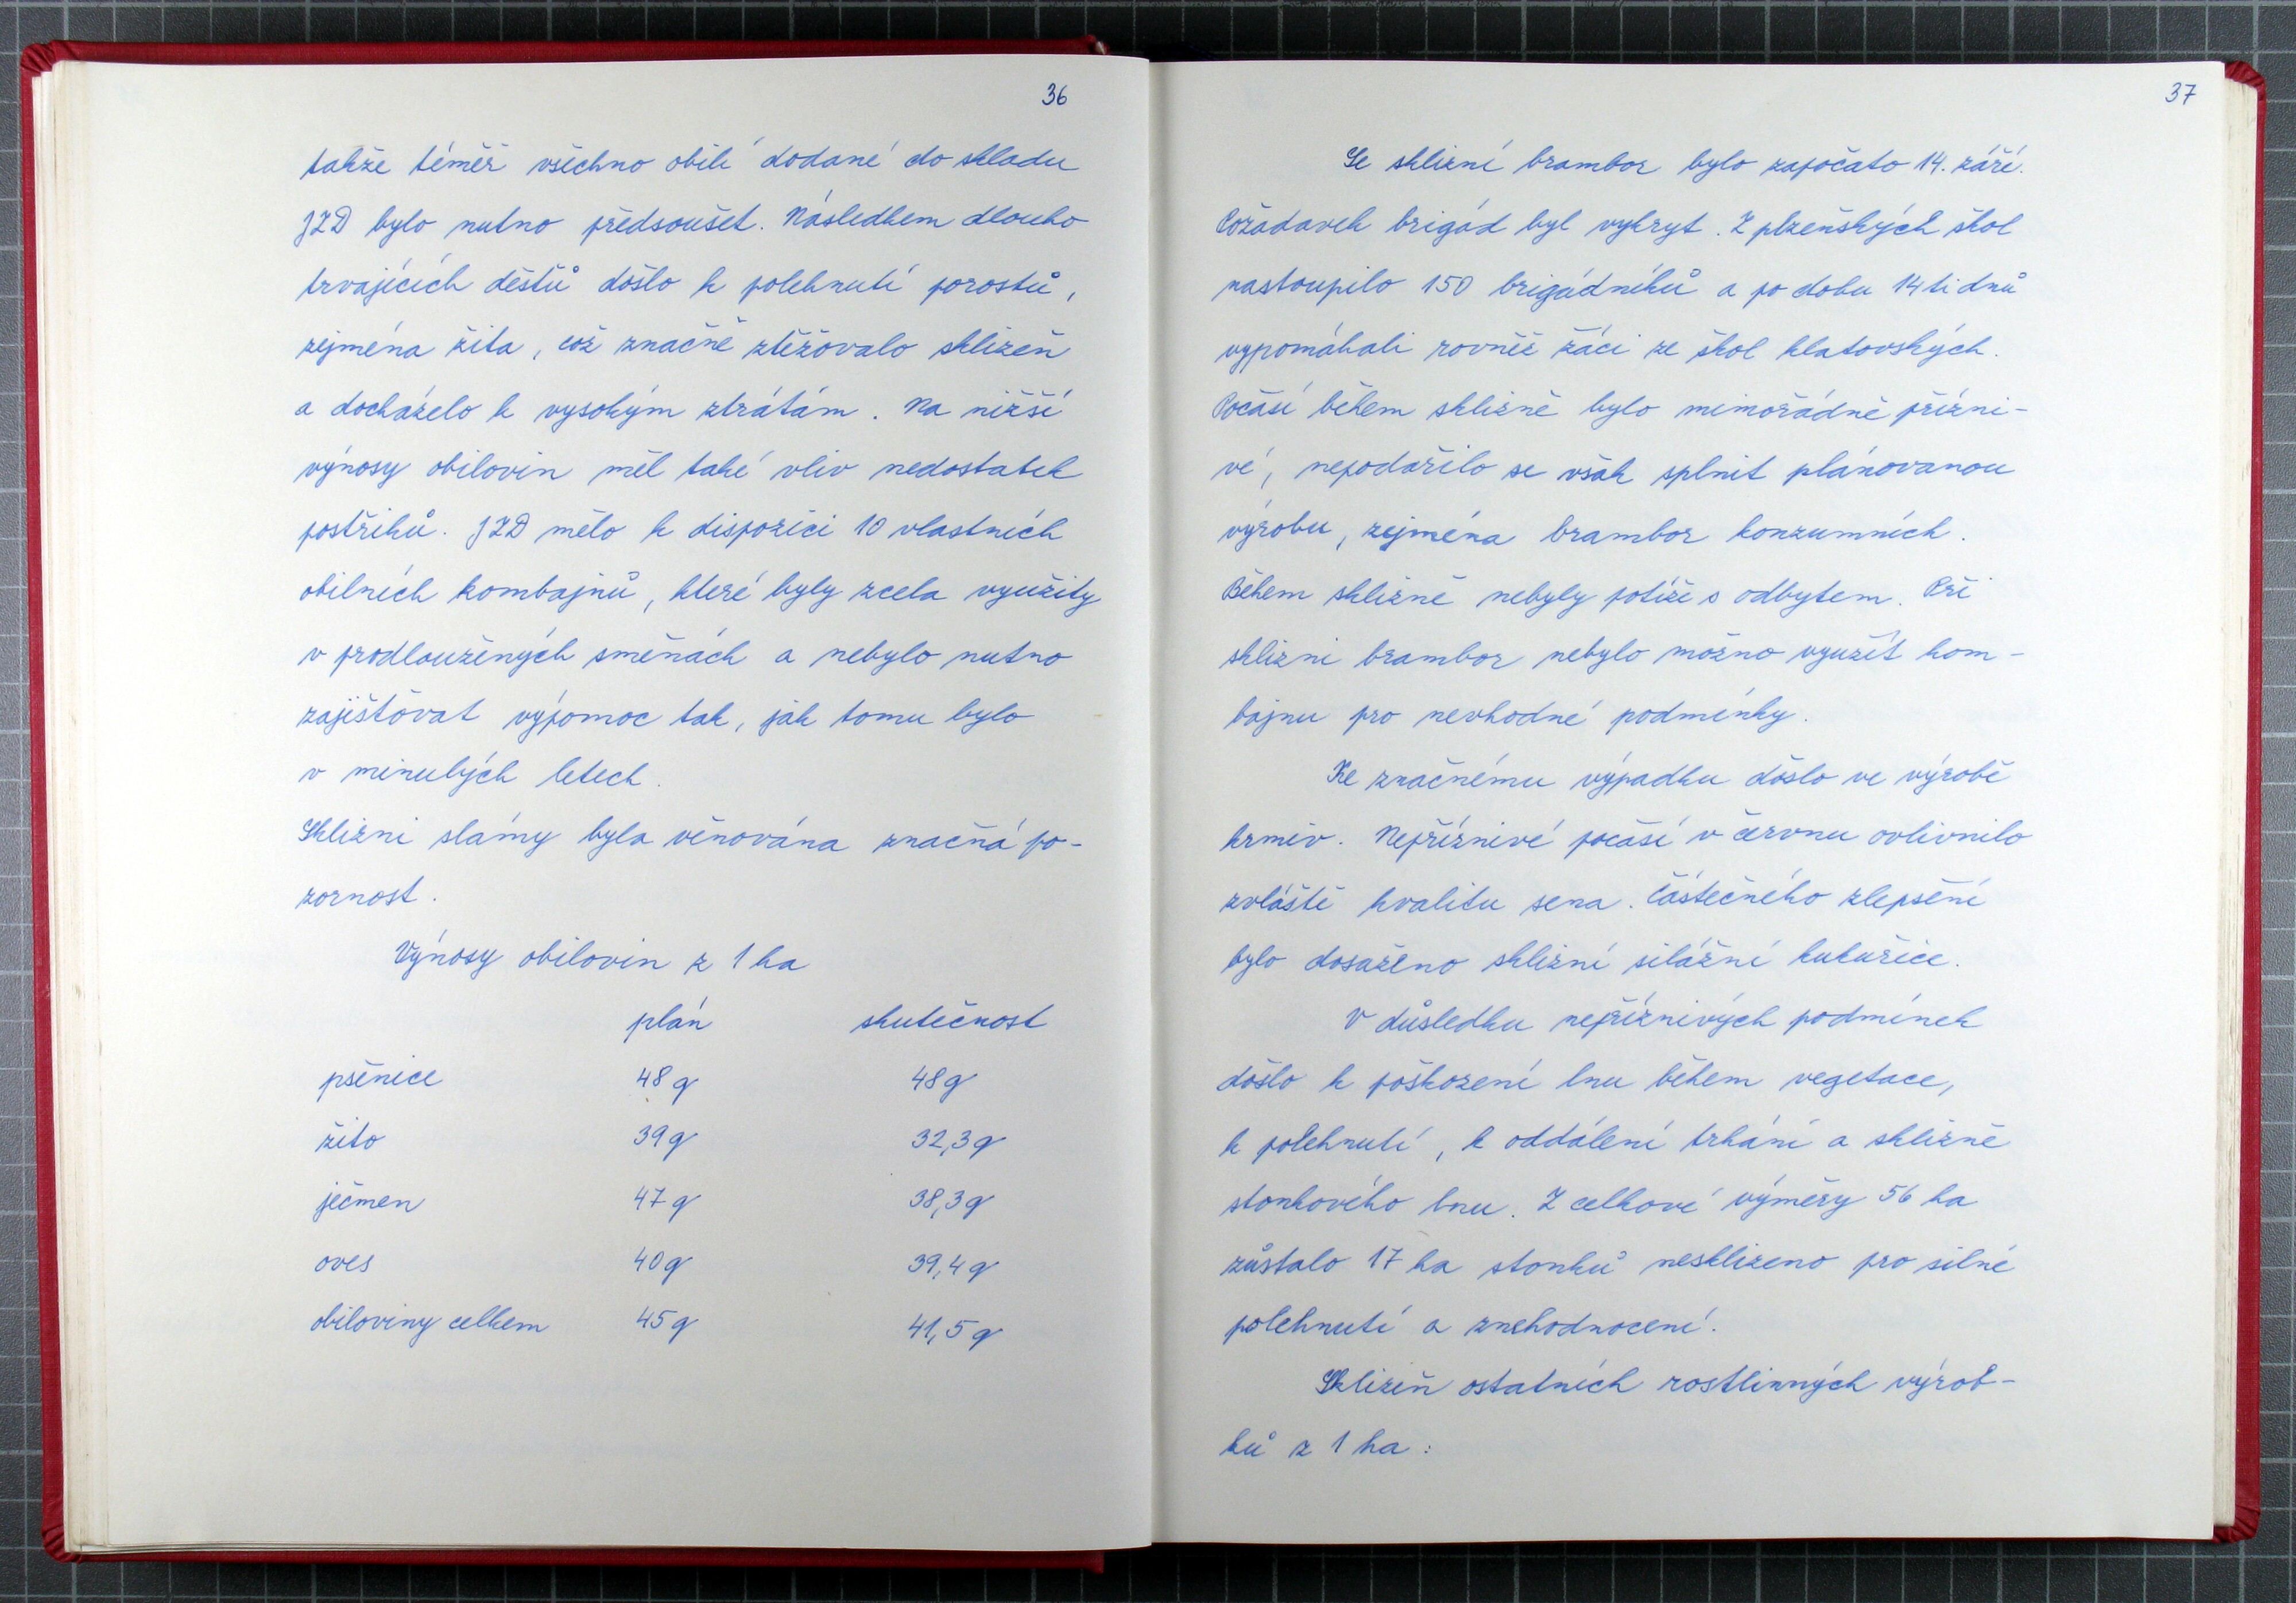 36
takže téměř všechno obilí dodané do skladu
JZD bylo nutno předsoušet. Následkem dlouho
trvajících dešťů došlo k polehnutí porostů,
zejména žita, což značně ztěžovalo sklizeň
a docházelo k vysokým ztrátám. Na nižší
výnosy obilovin měl také vliv nedostatek
postřiků. JZD mělo k dispozici 10 vlastních
obilních kombajnů, které byly zcela využity
v prodloužených směnách a nebylo nutno
zajišťovat výpomoc tak, jak tomu bylo
v minulých letech.
Sklizni slámy byla věnována značná po-
zornost.
Výnosy obilovin z 1 ha
plán skutečnost
pšenice 48 q 48 q
žito 39 q 32,3 q
ječmen 47 q 38,3 q
oves 40 q 39,4 q
obiloviny celkem 45 q 41,5 q
37
Se sklizní brambor bylo započato 14. září.
Požadavek brigád byl vykryt. Z plzeňských škol
nastoupilo 150 brigádníků a po dobu 14ti dnů
vypomáhali rovněž žáci ze škol klatovských.
Počasí během sklizně bylo mimořádně přízni-
vé, nepodařilo se však splnit plánovanou
výrobu, zejména brambor konzumních.
Během sklizně nebyly potíže s odbytem. Při
sklizni brambor nebylo možno využít kom-
bajnu pro nevhodné podmínky.
Ke značnému výpadku došlo ve výrobě
krmiv. Nepříznivé počasí v červnu ovlivnilo
zvláště kvalitu sena. Částečného zlepšení
bylo dosaženo sklizní silážní kukuřice.
V důsledku nepříznivých podmínek
došlo k poškození lnu během vegetace,
k polehnutí, k oddálení trhání a sklizně
stonkového lnu. Z celkové výměry 56 ha
zůstalo 17 ha stonků nesklizeno pro silné
polehnutí a znehodnocení.
Sklizeň ostatních rostlinných výrob-
ků z 1 ha: